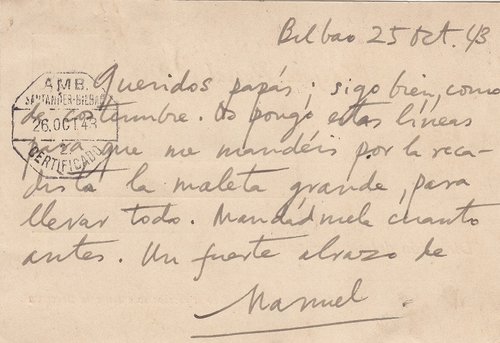 Bilbao 25 Oct. 43
AMB.
SANTANDER-BILBAO
26.OCT.43
2
CERTIFICADO
Queridos papás; sigo bien, como
de costumbre. Os pongo estas líneas
para que me mandéis por la reca-
dista la maleta grande, para
llevar todo. Mandádmela cuanto
antes. Un fuerte abrazo de
Manuel.